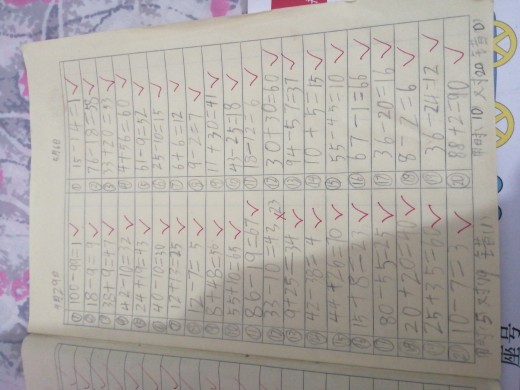 4月29日
② 18-9=9
③ 38+9=47
④ 42-10=32
⑤ 24+9=33
⑥ 40-10=30
⑦ 12+13=25
⑧ 12-7=5
⑩ 55+10=65
⑪ 86-19=67
⑫ 33-10=43 23
⑬ 9+25=34
⑭ 42-38=4
⑮ 44+26=70
⑯ 15+8=23
⑰ 80-55=25
⑱ 20+20=40
⑲ 25+35=60
⑳ 10-7=3
时间:5 对19 错1
① 15-14=1
② 76-18=58
③ 33+20=53
④ 4+56=60
⑤ 61-9=52
⑥ 25-10=15
⑦ 6+6=12
⑧ 9-2=7
⑨ 11+30=41
⑩ 43-25=18
⑪ 8-2=6
⑫ 30+30=60
⑬ 94-57=37
⑭ 10+5=15
⑮ 55-45=10
⑯ 67-1=66
⑰ 36-20=16
⑱ 8-2=6
⑲ 36-24=12
⑳ 88+2=90
时间:10 对20 错0
座号